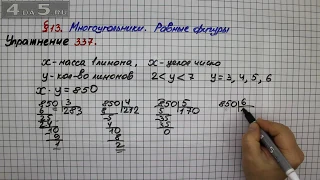 4 DA 5 RU
§13. Многоугольники. Равные фигуры
Упражнение 337.
x-масса 1 лимона, x-целое число
y-кол-во лимонов 2<y<7 y=3,4,5,6
x·y=850
850 3 850 4 850 5 850 6
6 283 8 212 5 170
25 5 35
24 4 35
10 10 0
9 8
1 2